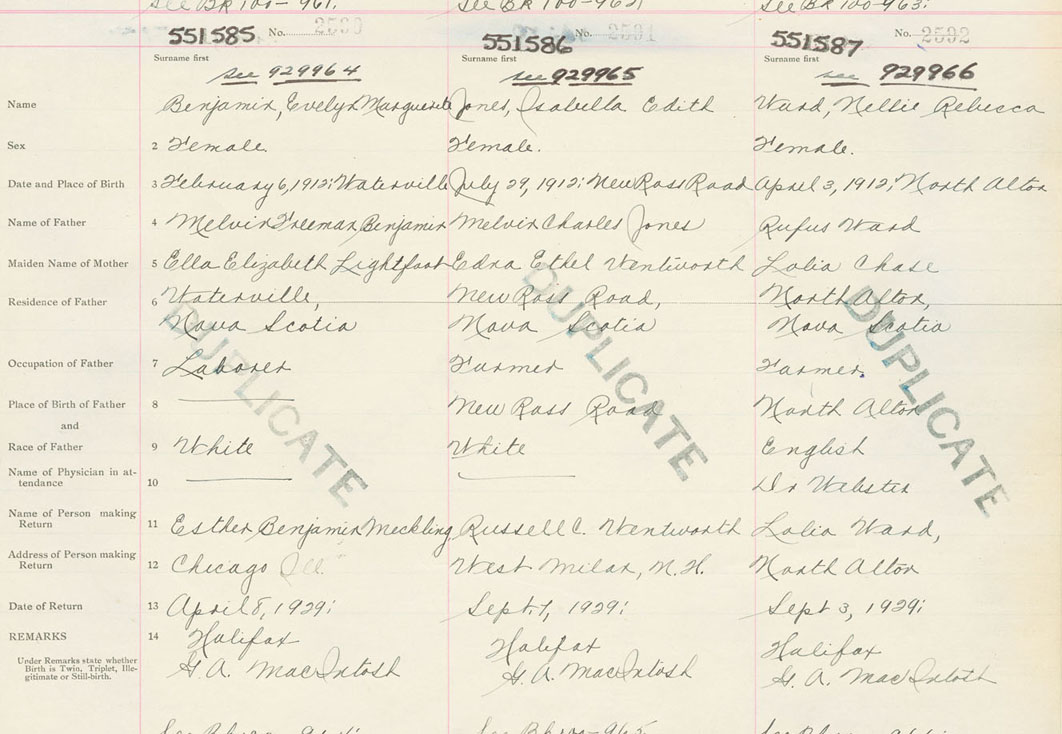 See Bk 100-961. See Bk 100-962. See Bk 100-963.
551585 No. 2590 551586 No. 2591 551587 No. 2592
Surname first Surname first Surname first
see 929964 see 929965 see 929966
Name Benjamin, Evelyn Marguerite Jones, Isabella Edith Ward, Nellie Rebecca
Sex 2 Female. Female. Female.
Date and Place of Birth 3 February 6, 1912; Waterville July 29, 1912; New Ross Road April 3, 1912; North Alton
Name of Father 4 Melvin Freeman Benjamin Melvin Charles Jones Rufus Ward
Maiden Name of Mother 5 Ella Elizabeth Lightfoot Edna Ethel Wentworth Lalia Chase
Residence of Father 6 Waterville, New Ross Road, North Alton,
Nova Scotia Nova Scotia Nova Scotia
Occupation of Father 7 Laborer Farmer Farmer.
Place of Birth of Father 8 New Ross Road North Alton
and
Race of Father 9 White White English
Name of Physician in at-
tendance 10 Dr Webster
Name of Person making
Return 11 Esther Benjamin Meckling Russell C. Wentworth Lalia Ward,
Address of Person making
Return 12 Chicago Ill. West Milan, N.H. North Alton
Date of Return 13 April 8, 1929; Sept. 7, 1929; Sept 3, 1929;
REMARKS 14 Halifax Halifax Halifax
Under Remarks state whether
Birth is Twin, Triplet, Ille-
gitimate or Still-birth.
G. A. MacIntosh G. A. MacIntosh G. A. MacIntosh
DUPLICATE DUPLICATE DUPLICATE